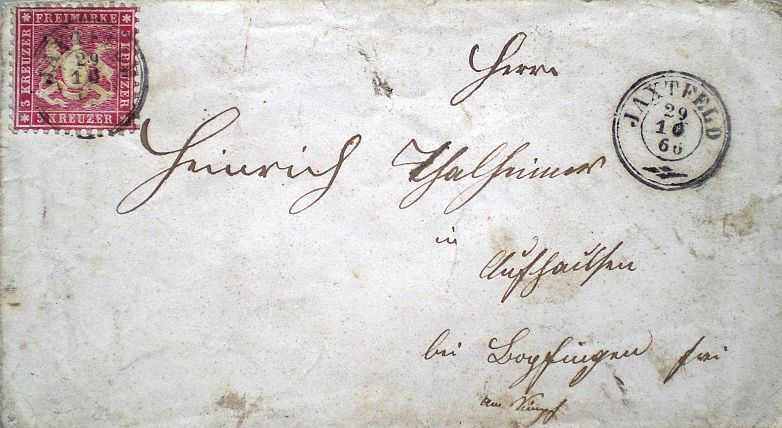 FREIMARKE
3 KREUZER
3 KREUZER
3 KREUZER
29
10
JAXTFELD
29
10
66
Herrn
Heinrich Thalheimer
in
Aufhausen
bei Bopfingen frei
am